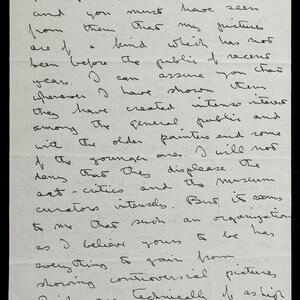 and you must have seen
from them that my pictures
are of a kind which has not
been before the public of recent
years. I can assure you that
wherever I have shown them
they have created intense interest
among the general public and
with the older painters and some
of the younger ones. I will not
deny that they displease the
art-critics and the museum
curators intensely. But it seems
to me that such an organization
as I believe yours to be has
everything to gain from
showing controversial pictures
technically of as high